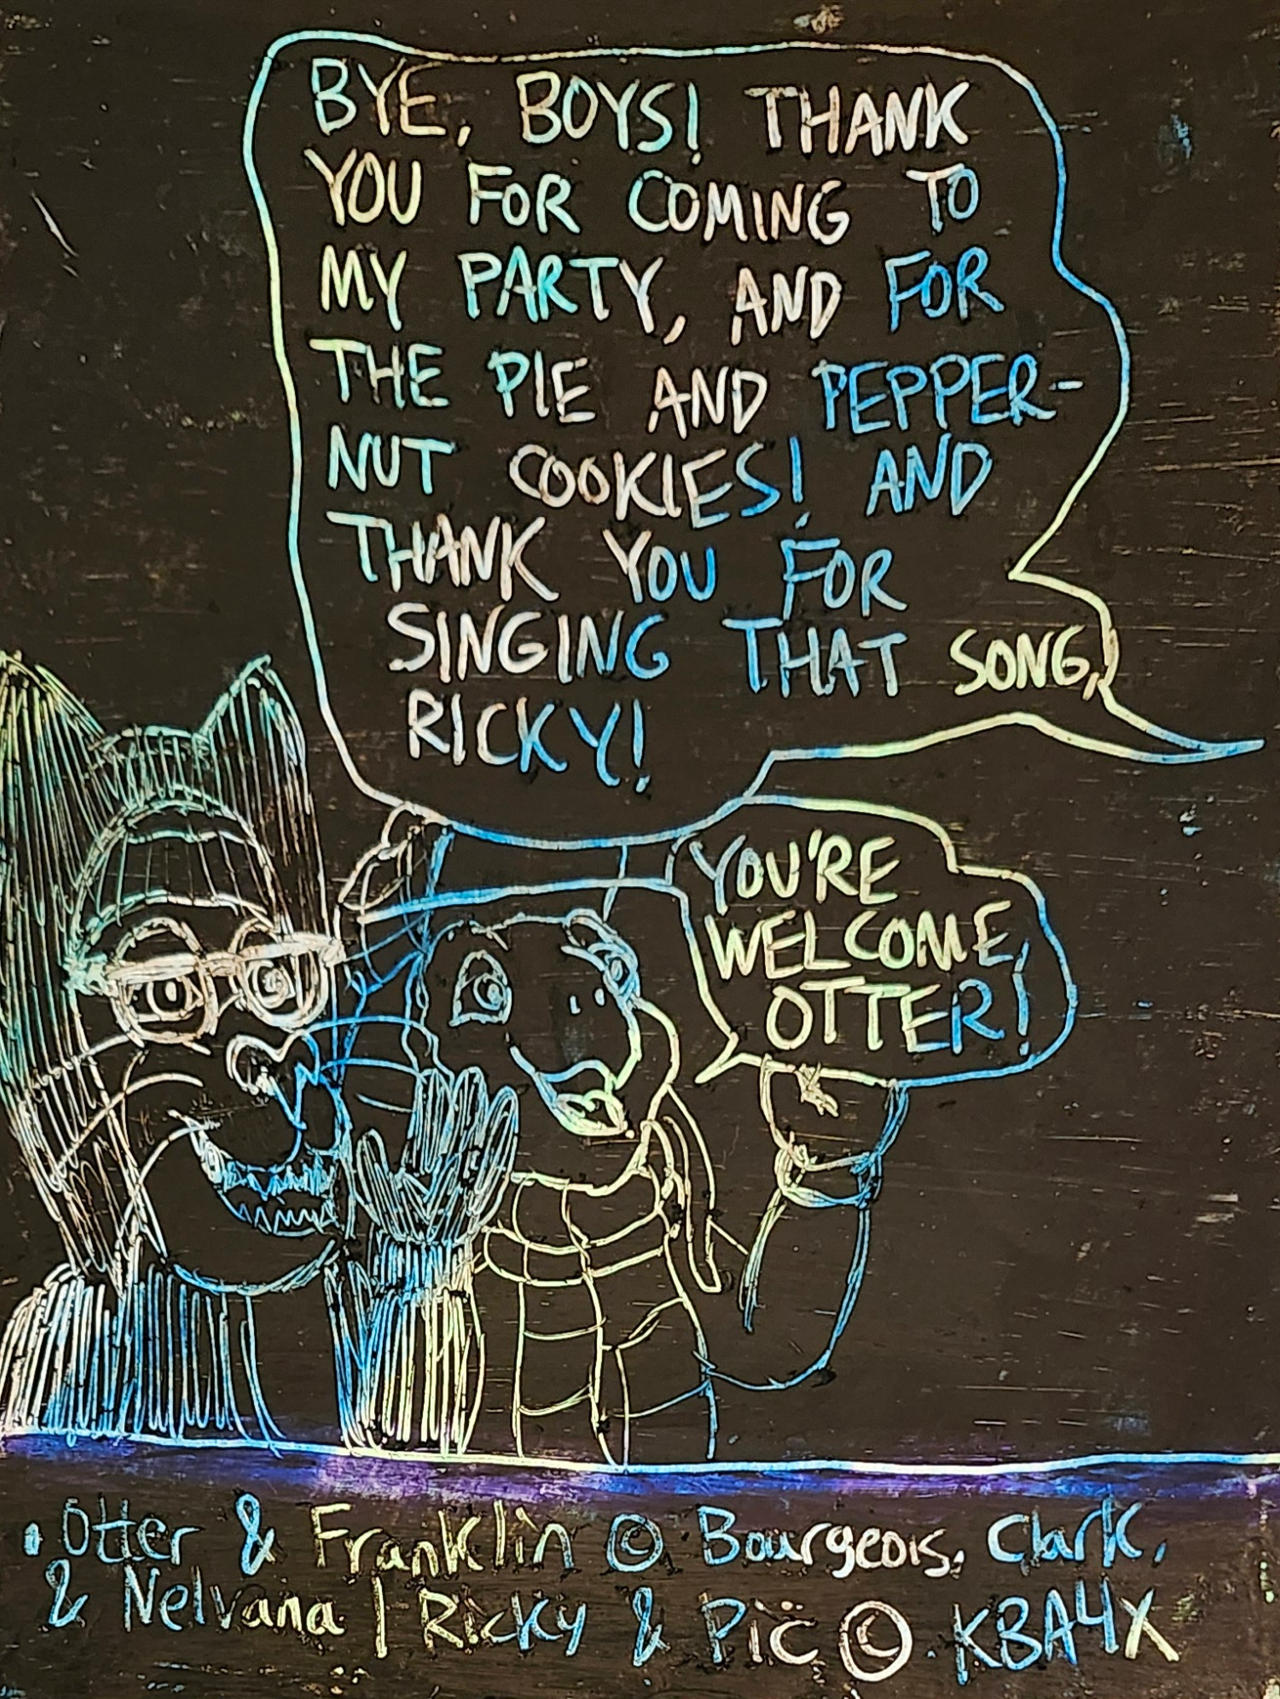 BYE, BOYS! THANK
YOU FOR COMING TO
MY PARTY, AND FOR
THE PIE AND PEPPER-
NUT COOKIES! AND
THANK YOU FOR
SINGING THAT SONG,
RICKY!
YOU'RE
WELCOME,
OTTER!
• Otter & Franklin © Bourgeois, Clark,
& Nelvana | Ricky & Pic © KBA4X